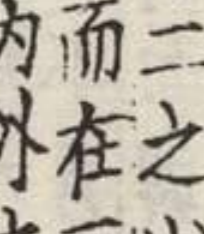 二之
而在
内外